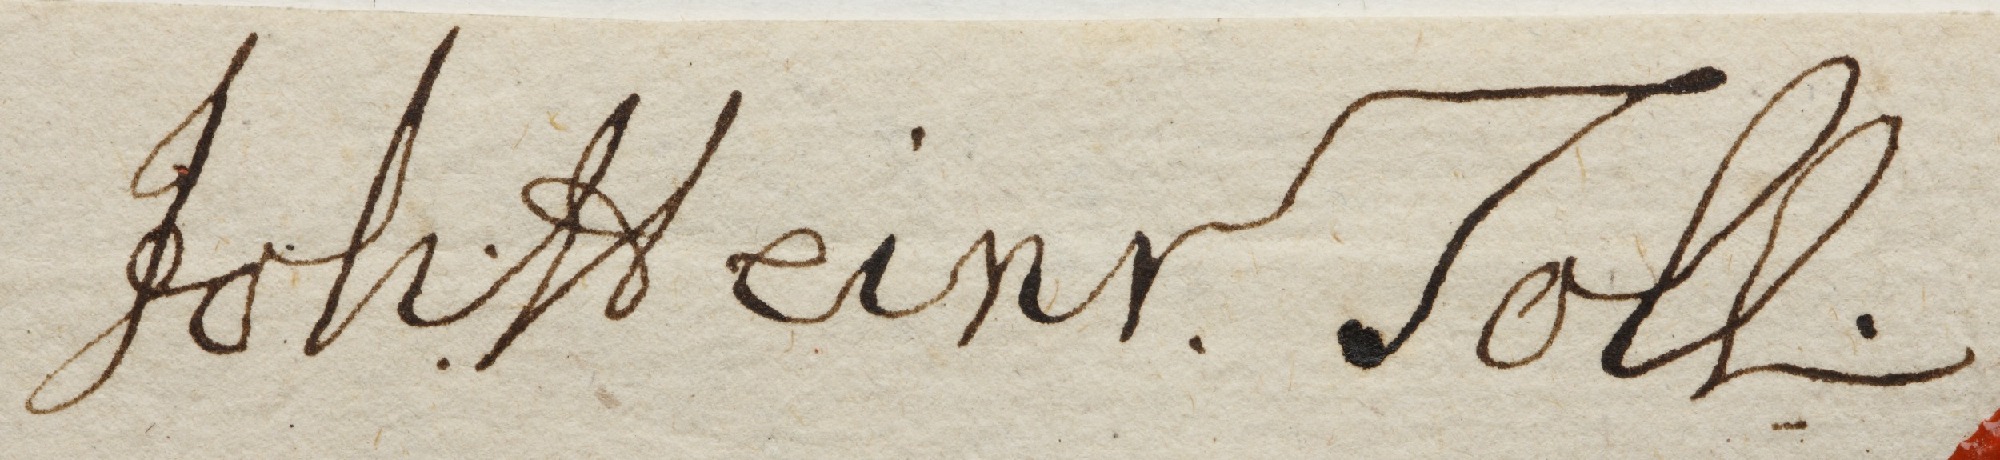 Joh. Heinr. Toll.